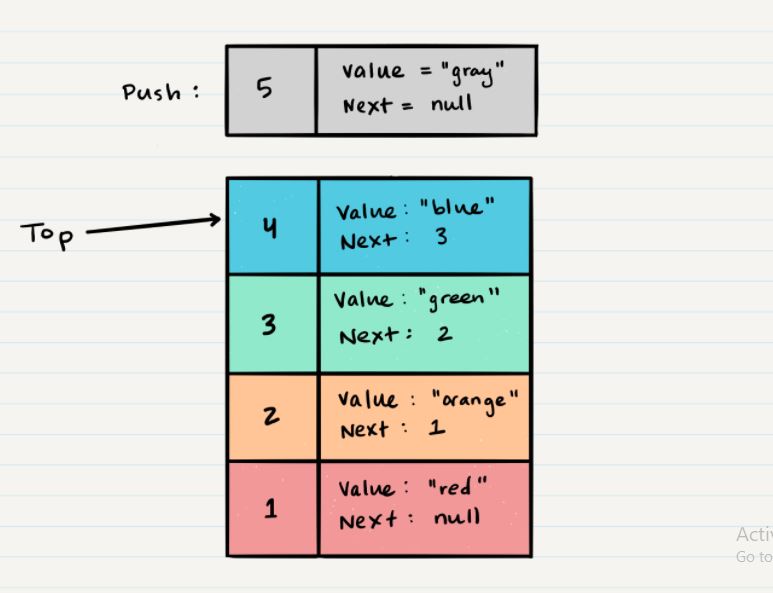 Push :
5
Value = "gray"
Next = null
Top
4
Value : "blue"
Next : 3
3
Value : "green"
Next : 2
2
Value : "orange"
Next : 1
1
Value : "red"
Next : null
Go to